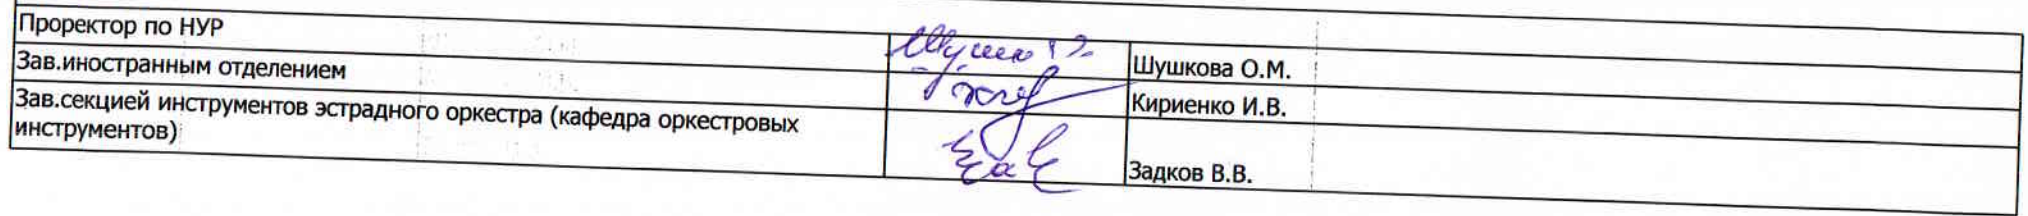 Проректор по НУР
Шушкова О.М.
Зав.иностранным отделением
Кириенко И.В.
Зав.секцией инструментов эстрадного оркестра (кафедра оркестровых
инструментов)
Задков В.В.